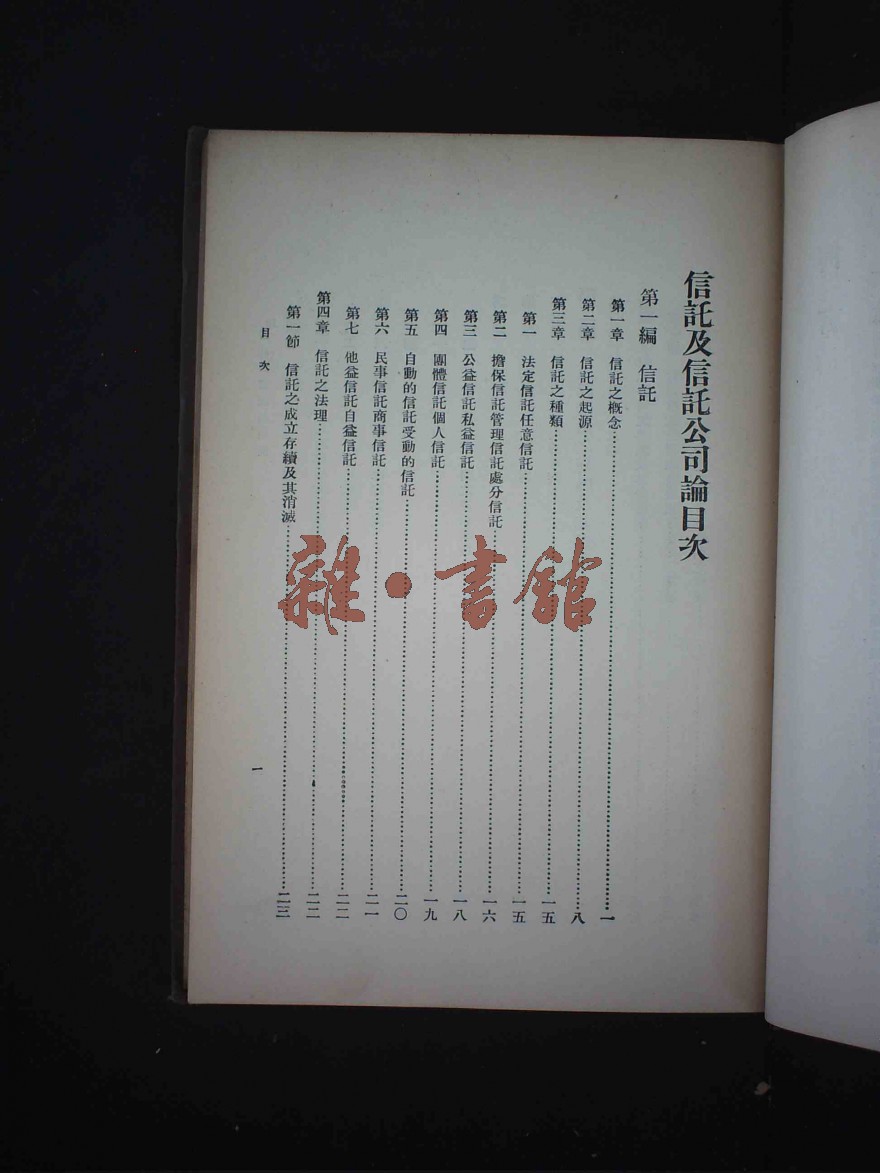 信託及信託公司論目次
第一編　信託
第一章　信託之槪念……一
第二章　信託之起源……八
第三章　信託之種類……一五
第一　法定信託任意信託……一五
第二　擔保信託管理信託處分信託……一六
第三　公益信託私益信託……一八
第四　團體信託個人信託……一九
第五　自動的信託受動的信託……二〇
第六　民事信託商事信託……二一
第七　他益信託自益信託……二二
第四章　信託之法理……二二
第一節　信託之成立存續及其消滅……二三
目次
一
雜·書館